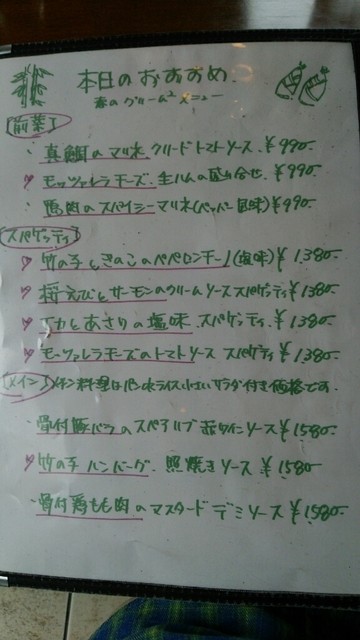 本日のおすすめ
春のクリーム² メニュー
[前菜]
・真鯛のマリネ クリードトマトソース ¥990-
♥ モッツァレラチーズ、生ハムの盛り合せ ¥990-
・鴨肉のスパイシーマリネ(ペッパー風味) ¥990-
スパゲッティ
♥ 竹の子ときのこのペペロンチーノ(塩味) ¥1,380-
♥ 桜えびとサーモンのクリームソース スパゲッティ ¥1380-
・イカとあさりの塩味 スパゲッティ ¥1380-
♥ モーツァレラチーズのトマトソース スパゲッティ ¥1380-
[メイン] メイン料理はパン又ライス サラダ付き価格です。
・骨付豚バラのスペアリブ 赤ワインソース ¥1580-
♥ 竹の子ハンバーグ 照焼きソース ¥1580-
・骨付鶏もも肉のマスタード デミソース ¥1580-